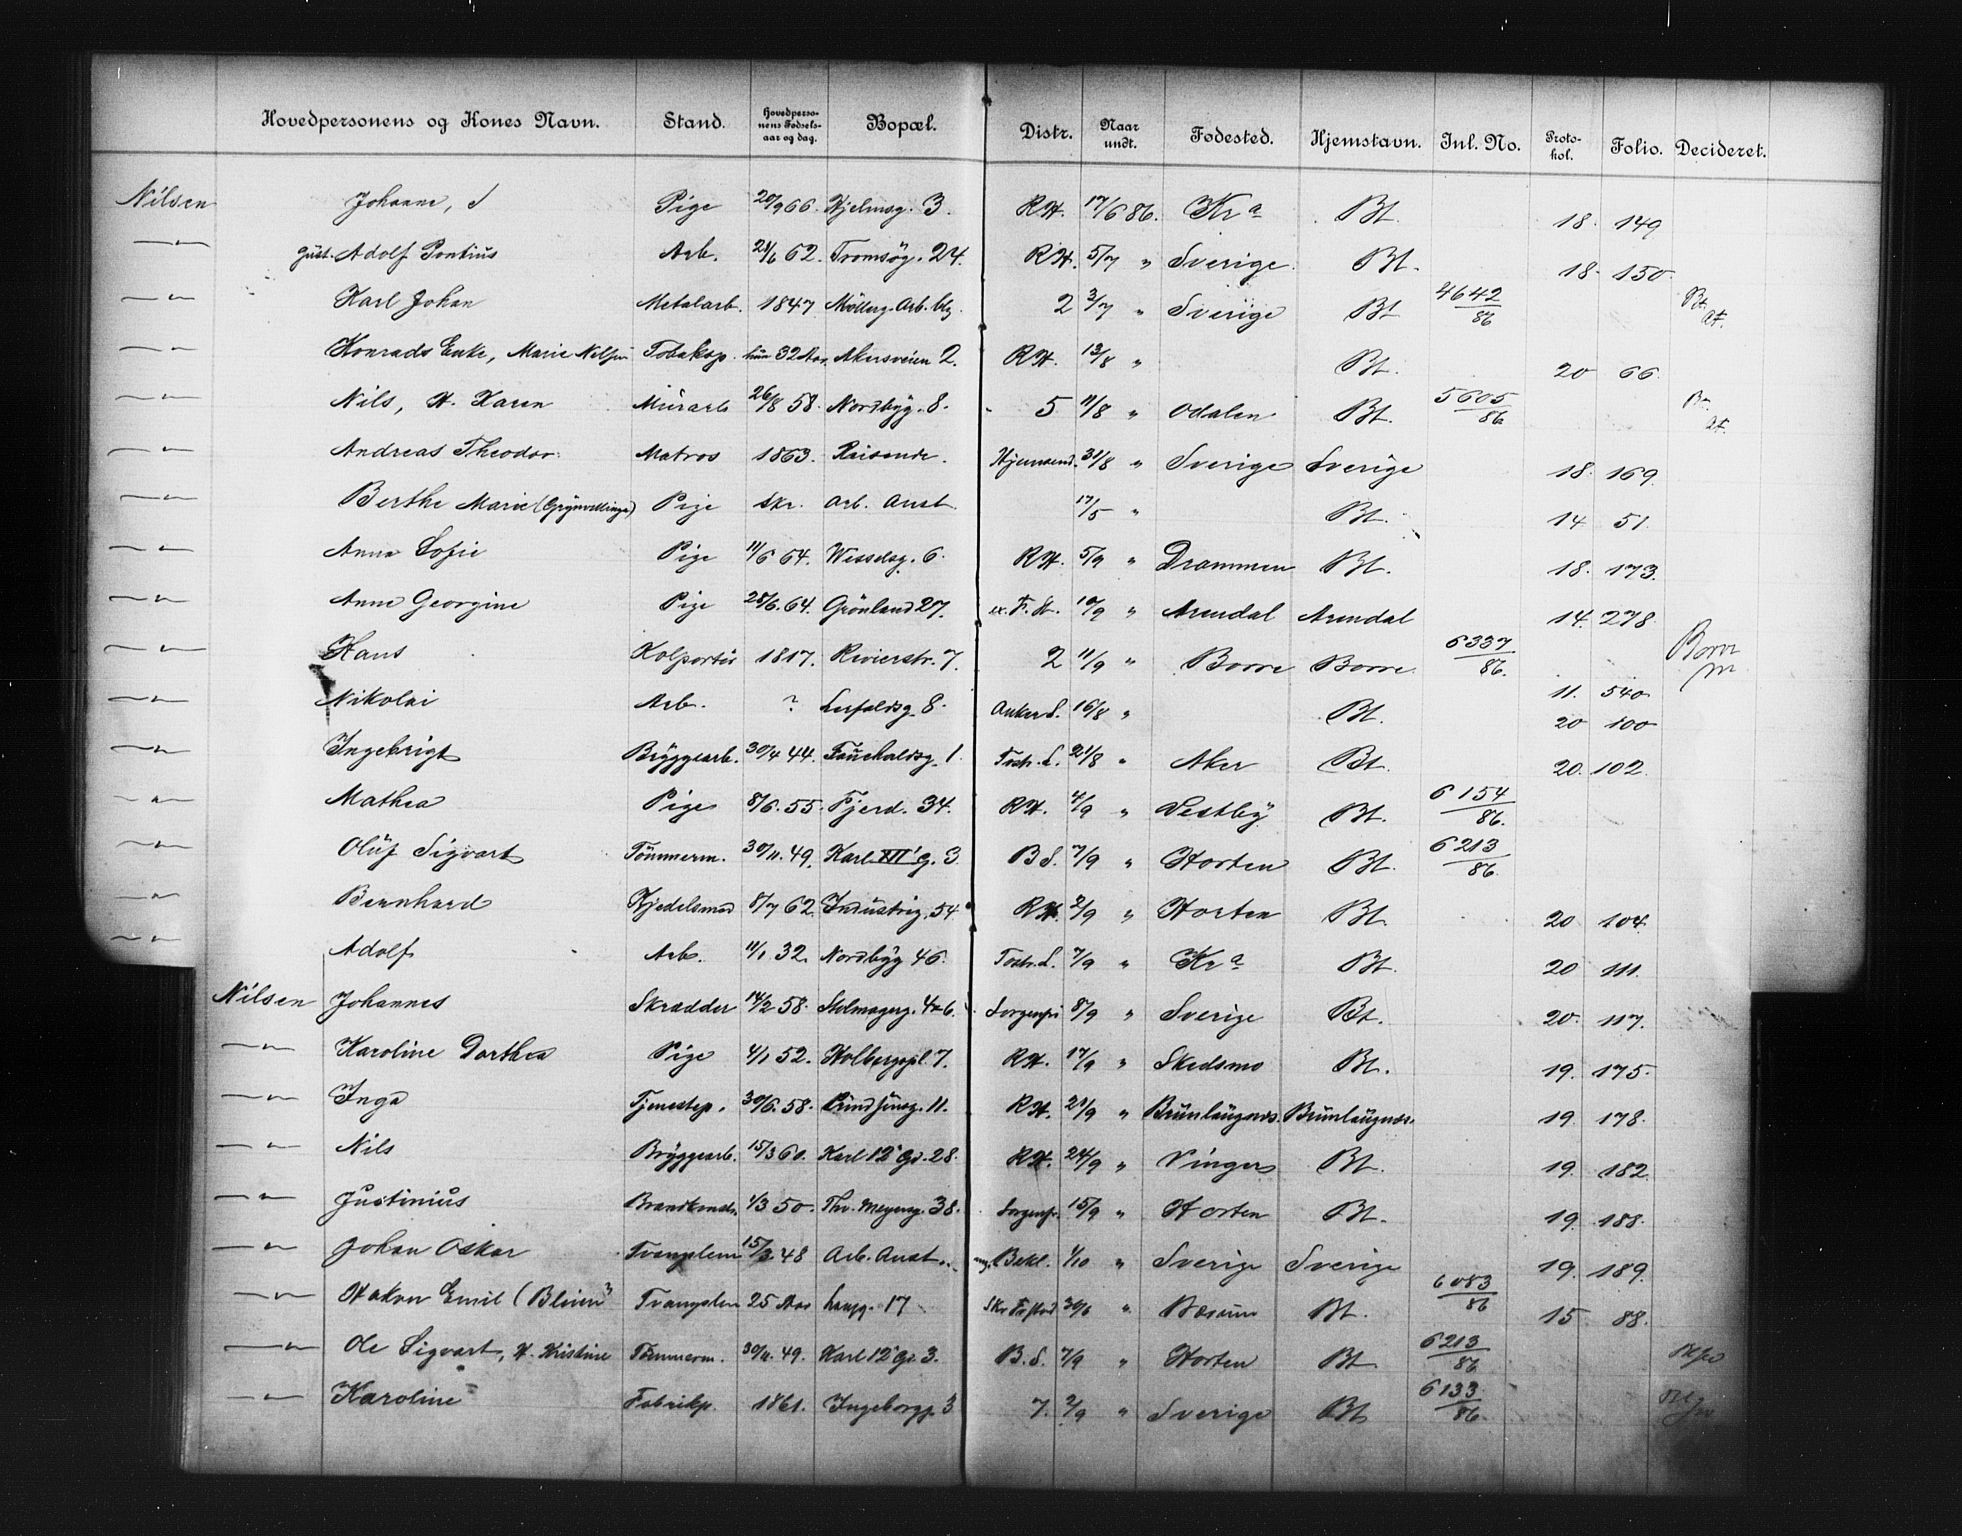 Hovedpersonens og Kones Navn. Stand. Hovedpersonens Fødselsaar og dag. Bopæl. Distr. Naar undt. Fødested. Hjemstavn. Inl. No. Protokol. Folio. Decideret.
Nilsen Johanne, S Pige 20/9 66. Hjelmsg. 3. R.H. 17/6 86. Kra Bt. 18. 149
—"— Gust. Adolf Pontius Arb. 21/6 62. Tromsög. 24. R.H. 5/7 " Sverige. Bt. 18. 150
—"— Karl Johan Metalarb. 1847 Möllerg. Arb. blg. 2 3/7 " Sverige Bt 4642/86 Bt. at.
—"— Konrads Enke, Marie Nilsen Tobaksp. hun 32 Aar. Akersveien 2. R.H. 13/8 " Bt. 20 66.
—"— Nils, H. Karen Murarb 26/8 58. Nordbyg. 8. 5 11/8 " Odalen. Bt. 5605/86 Bt. at.
—"— Andreas Theodor Matros 1863. Reisende. Hjemsend. 31/8 " Sverige Sverige 18. 169.
—"— Berthe Marie Pige Arb. Anst. 17/5 " Bt. 14 51.
—"— Anna Sofie Pige 11/6 64. Wesselsg. 6. R.H. 5/9 " Drammen Bt. 18. 173.
—"— Anne Georgine Pige 28/6. 64. Grönland 27. ex. F. H. 10/9 " Arendal Arendal 14. 278.
—"— Hans Kolportör 1817. Revierstr. 7. 2 11/9 " Borre Borre 6337/86. 11. 540 Borre
—"— Nikolai Arb. ? Lerfaldsg. 8. Anker S. 16/8 " Bt. 20 100
—"— Ingebrigt Bryggearb. 30/4 44. Fauchaldsg. 1. Tostr. L. 21/8 " Aker Bt. 20. 102.
—"— Mathea Pige 8/6. 55. Fjerd. 34. R.H. 4/9 " Vestby Bt. 6154/86.
—"— Oluf Sigvart Tömmerm. 30/11. 49. Karl XII' g. 3 B S. 7/9 " Horten Bt. 6213/86.
—"— Bernhard Kjedelsmed 8/7 62. Industrig. 54 R.H. 2/9 " Horten Bt. 20 104.
—"— Adolf Arb. 11/1 32. Nordbyg 46. Tostr. L. 7/9 " Kra Bt. 20 111.
Nilsen Johannes Skrædder 14/2 58. Stolmagerg. 4+6. Sorgenfri 8/9 " Sverige Bt. 20. 117.
—"— Karoline Dorthea Pige 4/1 52. Holbergspl. 7. R.H. 17/9 " Skedsmo Bt. 19. 175.
—"— Inga Tjenestep. 30/6. 58. 11. R.H. 21/9 " Brunlaugnæs. Brunlaugnæs. 19. 178.
—"— Nils Bryggearb. 15/3 60. Karl 12' Gd. 28. R.H. 24/9 " Vinger Bt. 19. 182.
—"— Justinius 1/3 50. Thv. Meyersg. 38. Sorgenfr. 15/9 " Horten Bt. 19. 188.
—"— Johan Oskar Tvangslem 15/3. 48 Arb. Anst. Bekl. 1/10 " Sverige Sverige 19. 189.
—"— Hakon Emil Tvangslem 25 Aar 17 30/6 " Bærum Bt. 6083/86 15 88.
—"— Ole Sigvart, H. Kristine Tömmerm. 30/11. 49. Karl 12' Gd. 3. B. S. 7/9 " Horten Bt 6213/86
—"— Karoline Fabrikp. 1861. Ingeborgg. 3 7. 2/9 " Sverige Bt 6133/86.